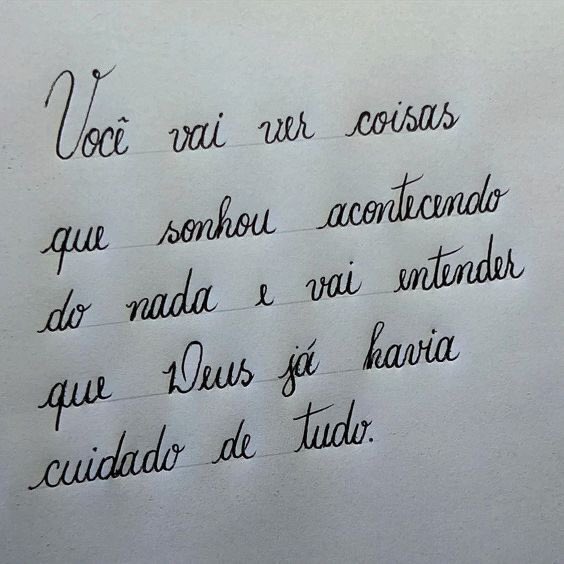 Você vai ver coisas
que sonhou acontecendo
do nada e vai entender
que Deus já havia
cuidado de tudo.